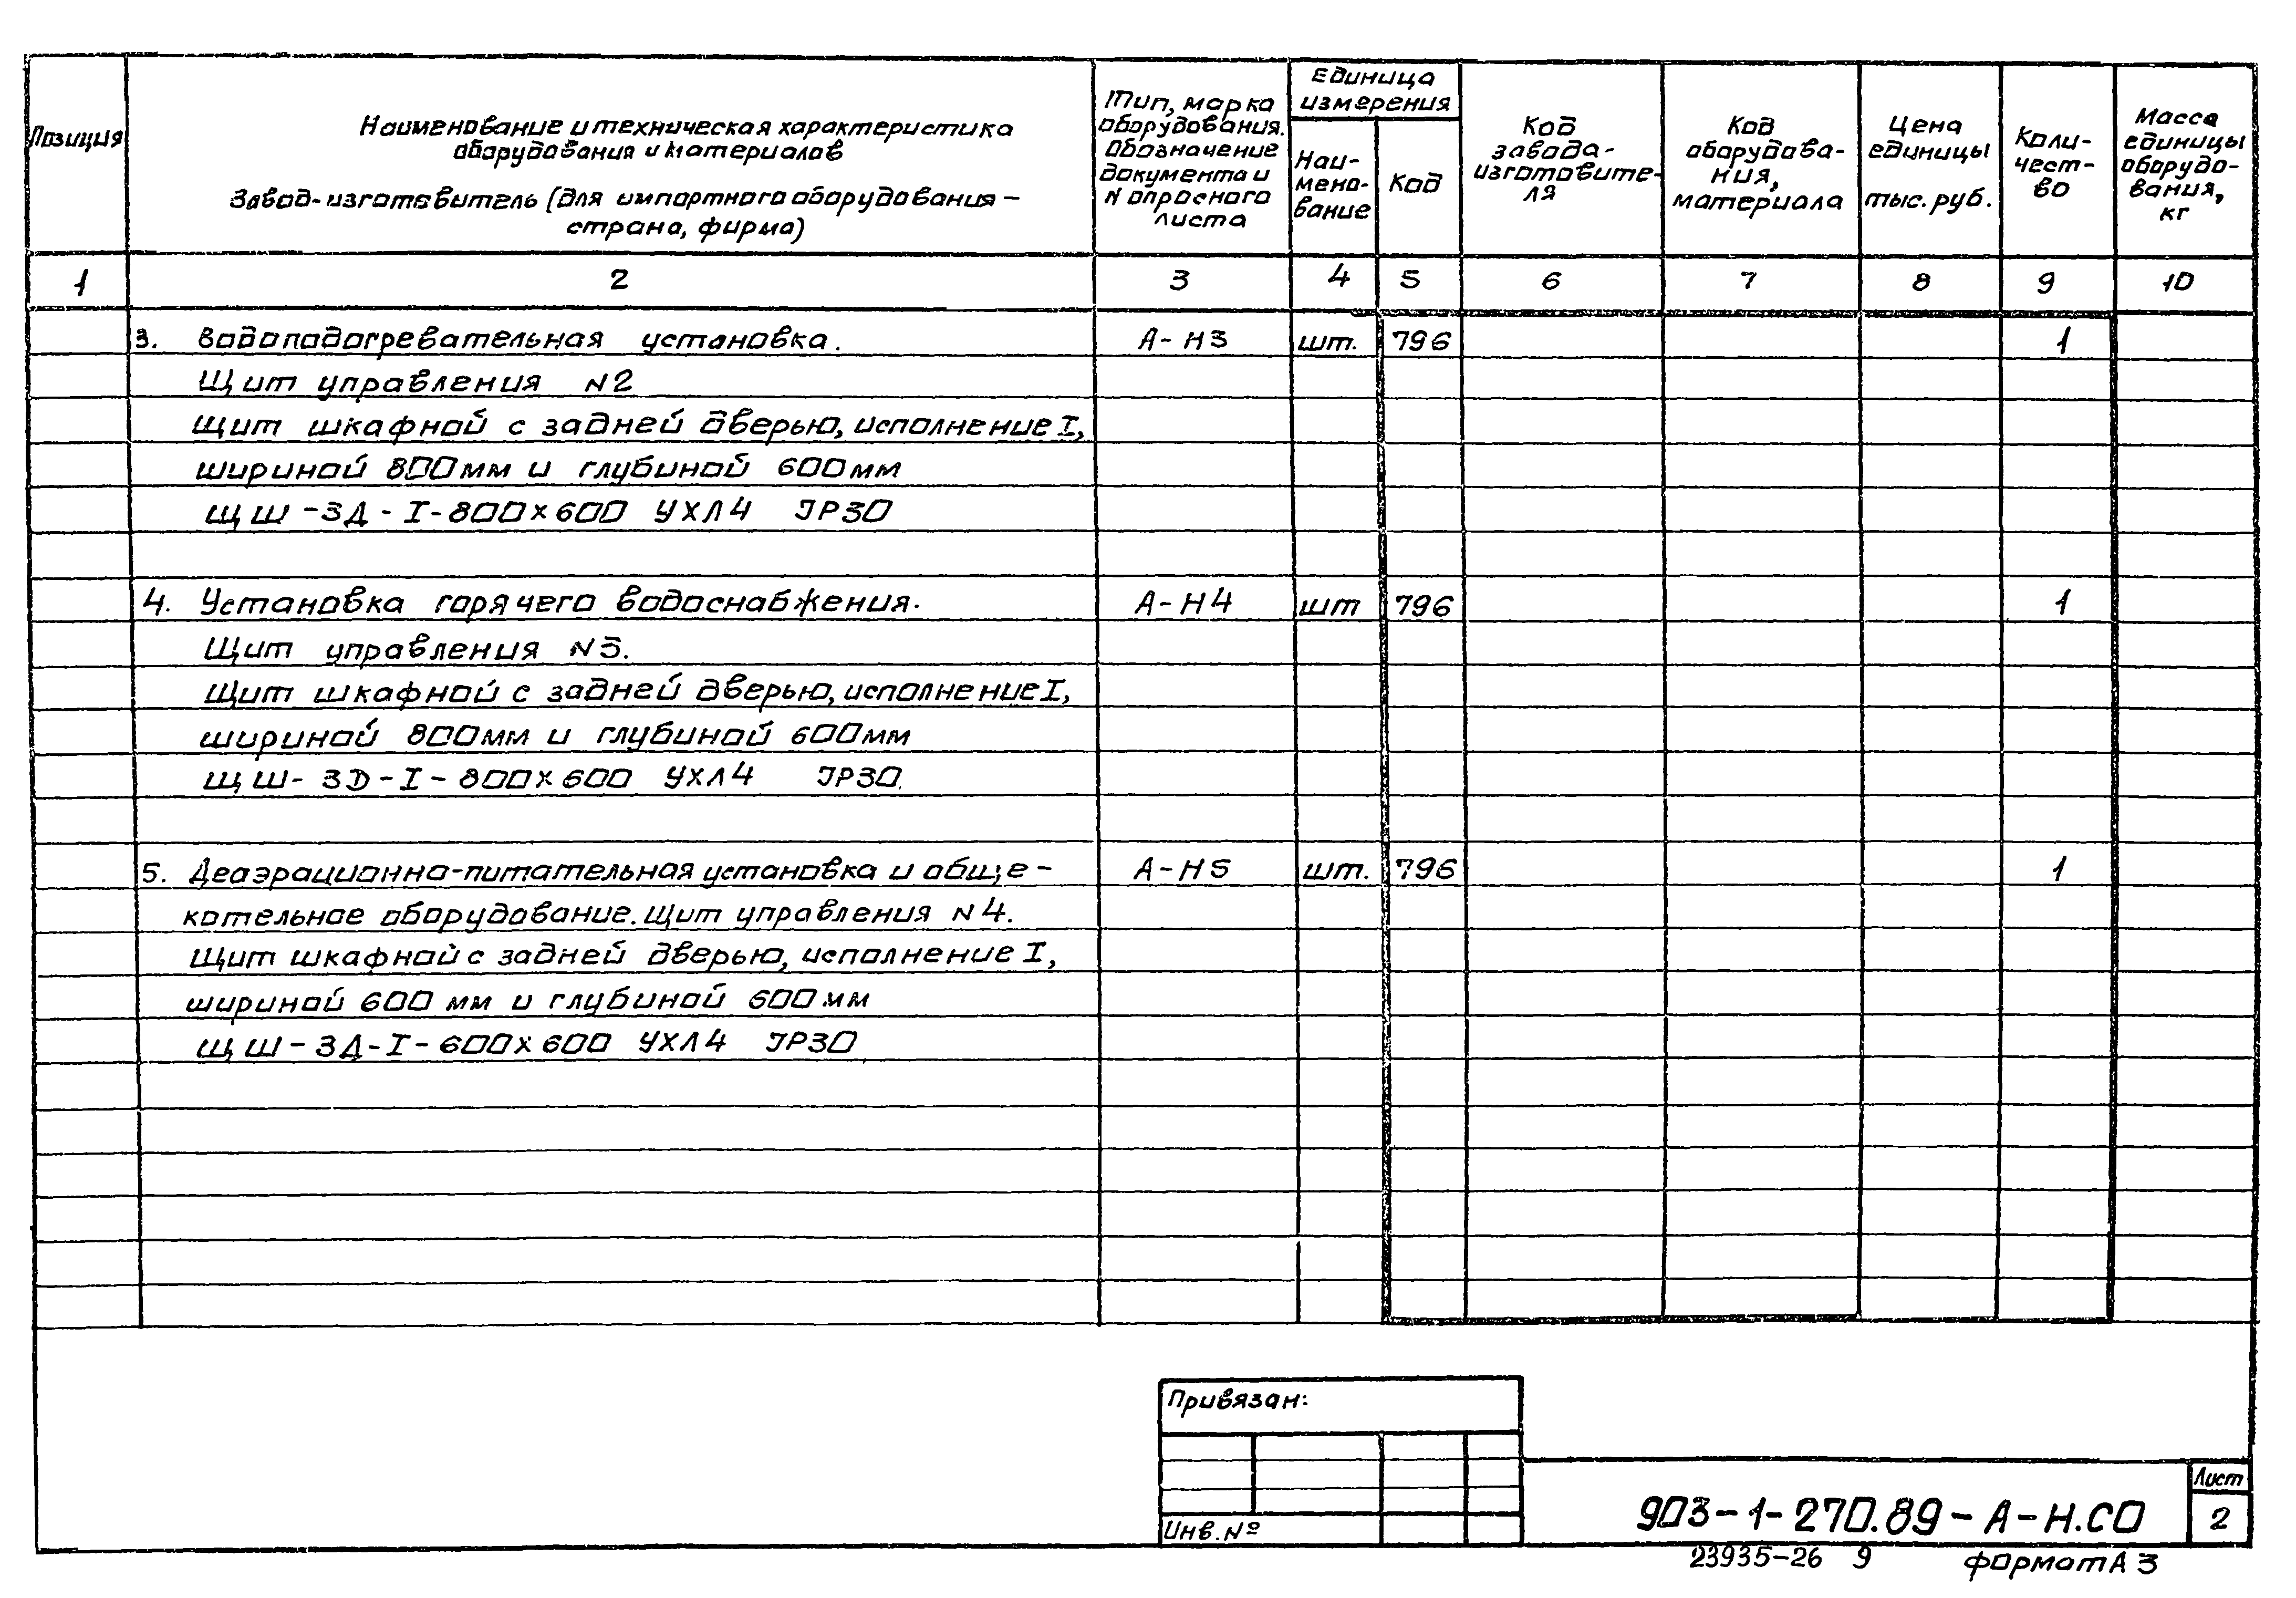 Позиция
Наименование и техническая характеристика
оборудования и материалов
Завод-изготовитель (для импортного оборудования –
страна, фирма)
Тип, марка
оборудования.
Обозначение
документа и
N опросного
листа
Единица
измерения
Наи-
мено-
вание
Код
Код
завода-
изготовите-
ля
Код
оборудова-
ния,
материала
Цена
единицы
тыс. руб.
Коли-
чест-
во
Масса
единицы
оборудо-
вания,
кг
1 2 3 4 5 6 7 8 9 10
3. Водоподогревательная установка. А-Н3 шт. 796 1
Щит управления N2
Щит шкафной с задней дверью, исполнение I,
шириной 800мм и глубиной 600мм
ЩШ-ЗД-I-800х600 УХЛ4 IP30
4. Установка горячего водоснабжения. А-Н4 шт 796 1
Щит управления N3.
Щит шкафной с задней дверью, исполнение I,
шириной 800мм и глубиной 600мм
ЩШ-ЗD-I-800х600 УХЛ4 IP30.
5. Деаэрационно-питательная установка и обще- А-Н5 шт. 796 1
котельное оборудование. Щит управления N4.
Щит шкафной с задней дверью, исполнение I,
шириной 600 мм и глубиной 600мм
ЩШ-ЗД-I-600х600 УХЛ4 IP30
Привязан:
Инв. №
903-1-270.89-А-Н.СО
Лист
2
23935-26 9 формат А3